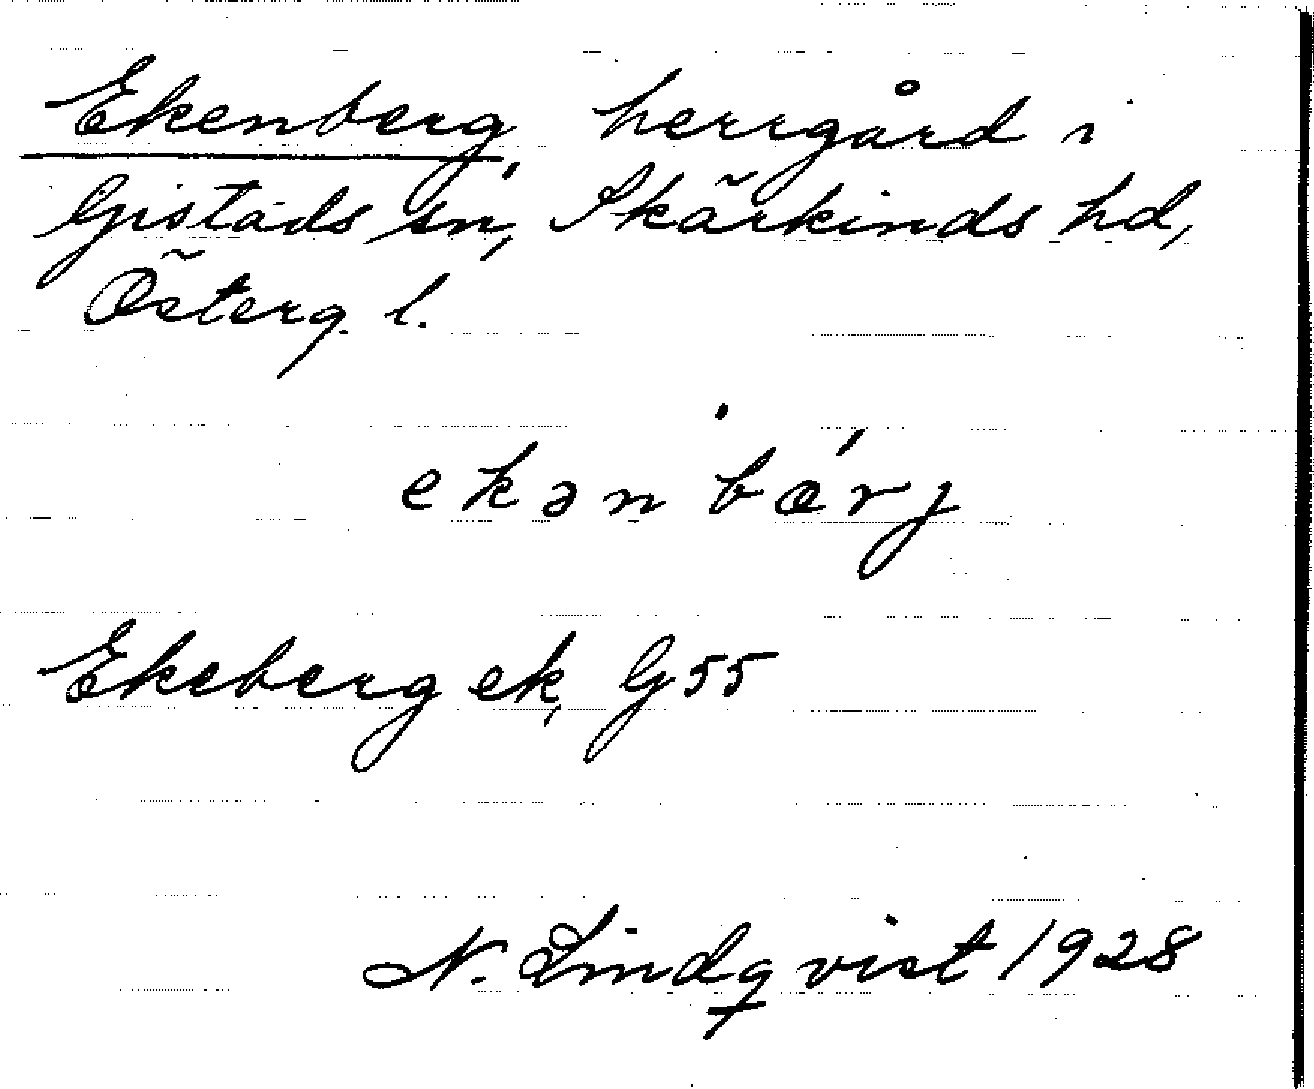 Ekenberg, herrgård i
Gistads sn, Skärkinds hd,
Österg. l.
ekən bǽrj
Ekeberg ek, G55
N. Lindqvist 1928